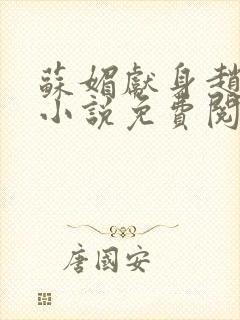 蘇媚獻身趙
小說免費閱
唐國安